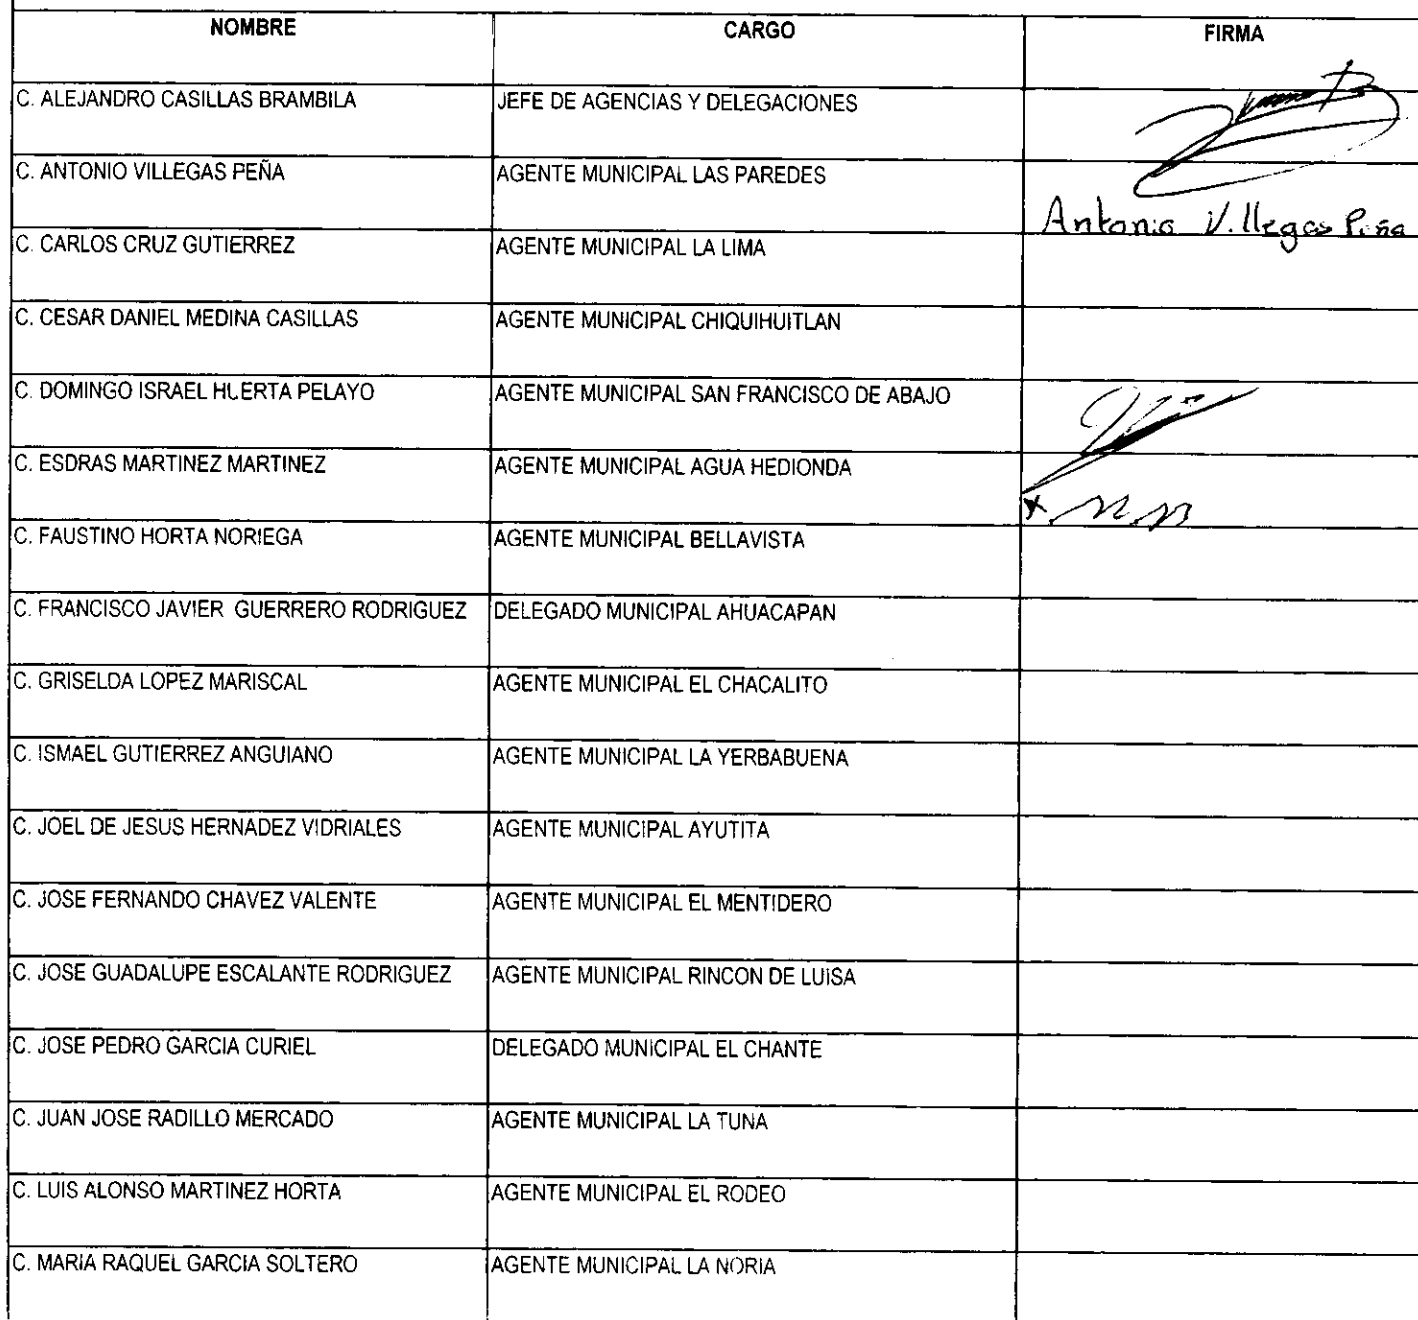 NOMBRE CARGO FIRMA
C. ALEJANDRO CASILLAS BRAMBILA JEFE DE AGENCIAS Y DELEGACIONES
C. ANTONIO VILLEGAS PEÑA AGENTE MUNICIPAL LAS PAREDES
Antonio Villegas Peña
C. CARLOS CRUZ GUTIERREZ AGENTE MUNICIPAL LA LIMA
C. CESAR DANIEL MEDINA CASILLAS AGENTE MUNICIPAL CHIQUIHUITLAN
C. DOMINGO ISRAEL HUERTA PELAYO AGENTE MUNICIPAL SAN FRANCISCO DE ABAJO
C. ESDRAS MARTINEZ MARTINEZ AGENTE MUNICIPAL AGUA HEDIONDA
C. FAUSTINO HORTA NORIEGA AGENTE MUNICIPAL BELLAVISTA
C. FRANCISCO JAVIER GUERRERO RODRIGUEZ DELEGADO MUNICIPAL AHUACAPAN
C. GRISELDA LOPEZ MARISCAL AGENTE MUNICIPAL EL CHACALITO
C. ISMAEL GUTIERREZ ANGUIANO AGENTE MUNICIPAL LA YERBABUENA
C. JOEL DE JESUS HERNADEZ VIDRIALES AGENTE MUNICIPAL AYUTITA
C. JOSE FERNANDO CHAVEZ VALENTE AGENTE MUNICIPAL EL MENTIDERO
C. JOSE GUADALUPE ESCALANTE RODRIGUEZ AGENTE MUNICIPAL RINCON DE LUISA
C. JOSE PEDRO GARCIA CURIEL DELEGADO MUNICIPAL EL CHANTE
C. JUAN JOSE RADILLO MERCADO AGENTE MUNICIPAL LA TUNA
C. LUIS ALONSO MARTINEZ HORTA AGENTE MUNICIPAL EL RODEO
C. MARIA RAQUEL GARCIA SOLTERO AGENTE MUNICIPAL LA NORIA